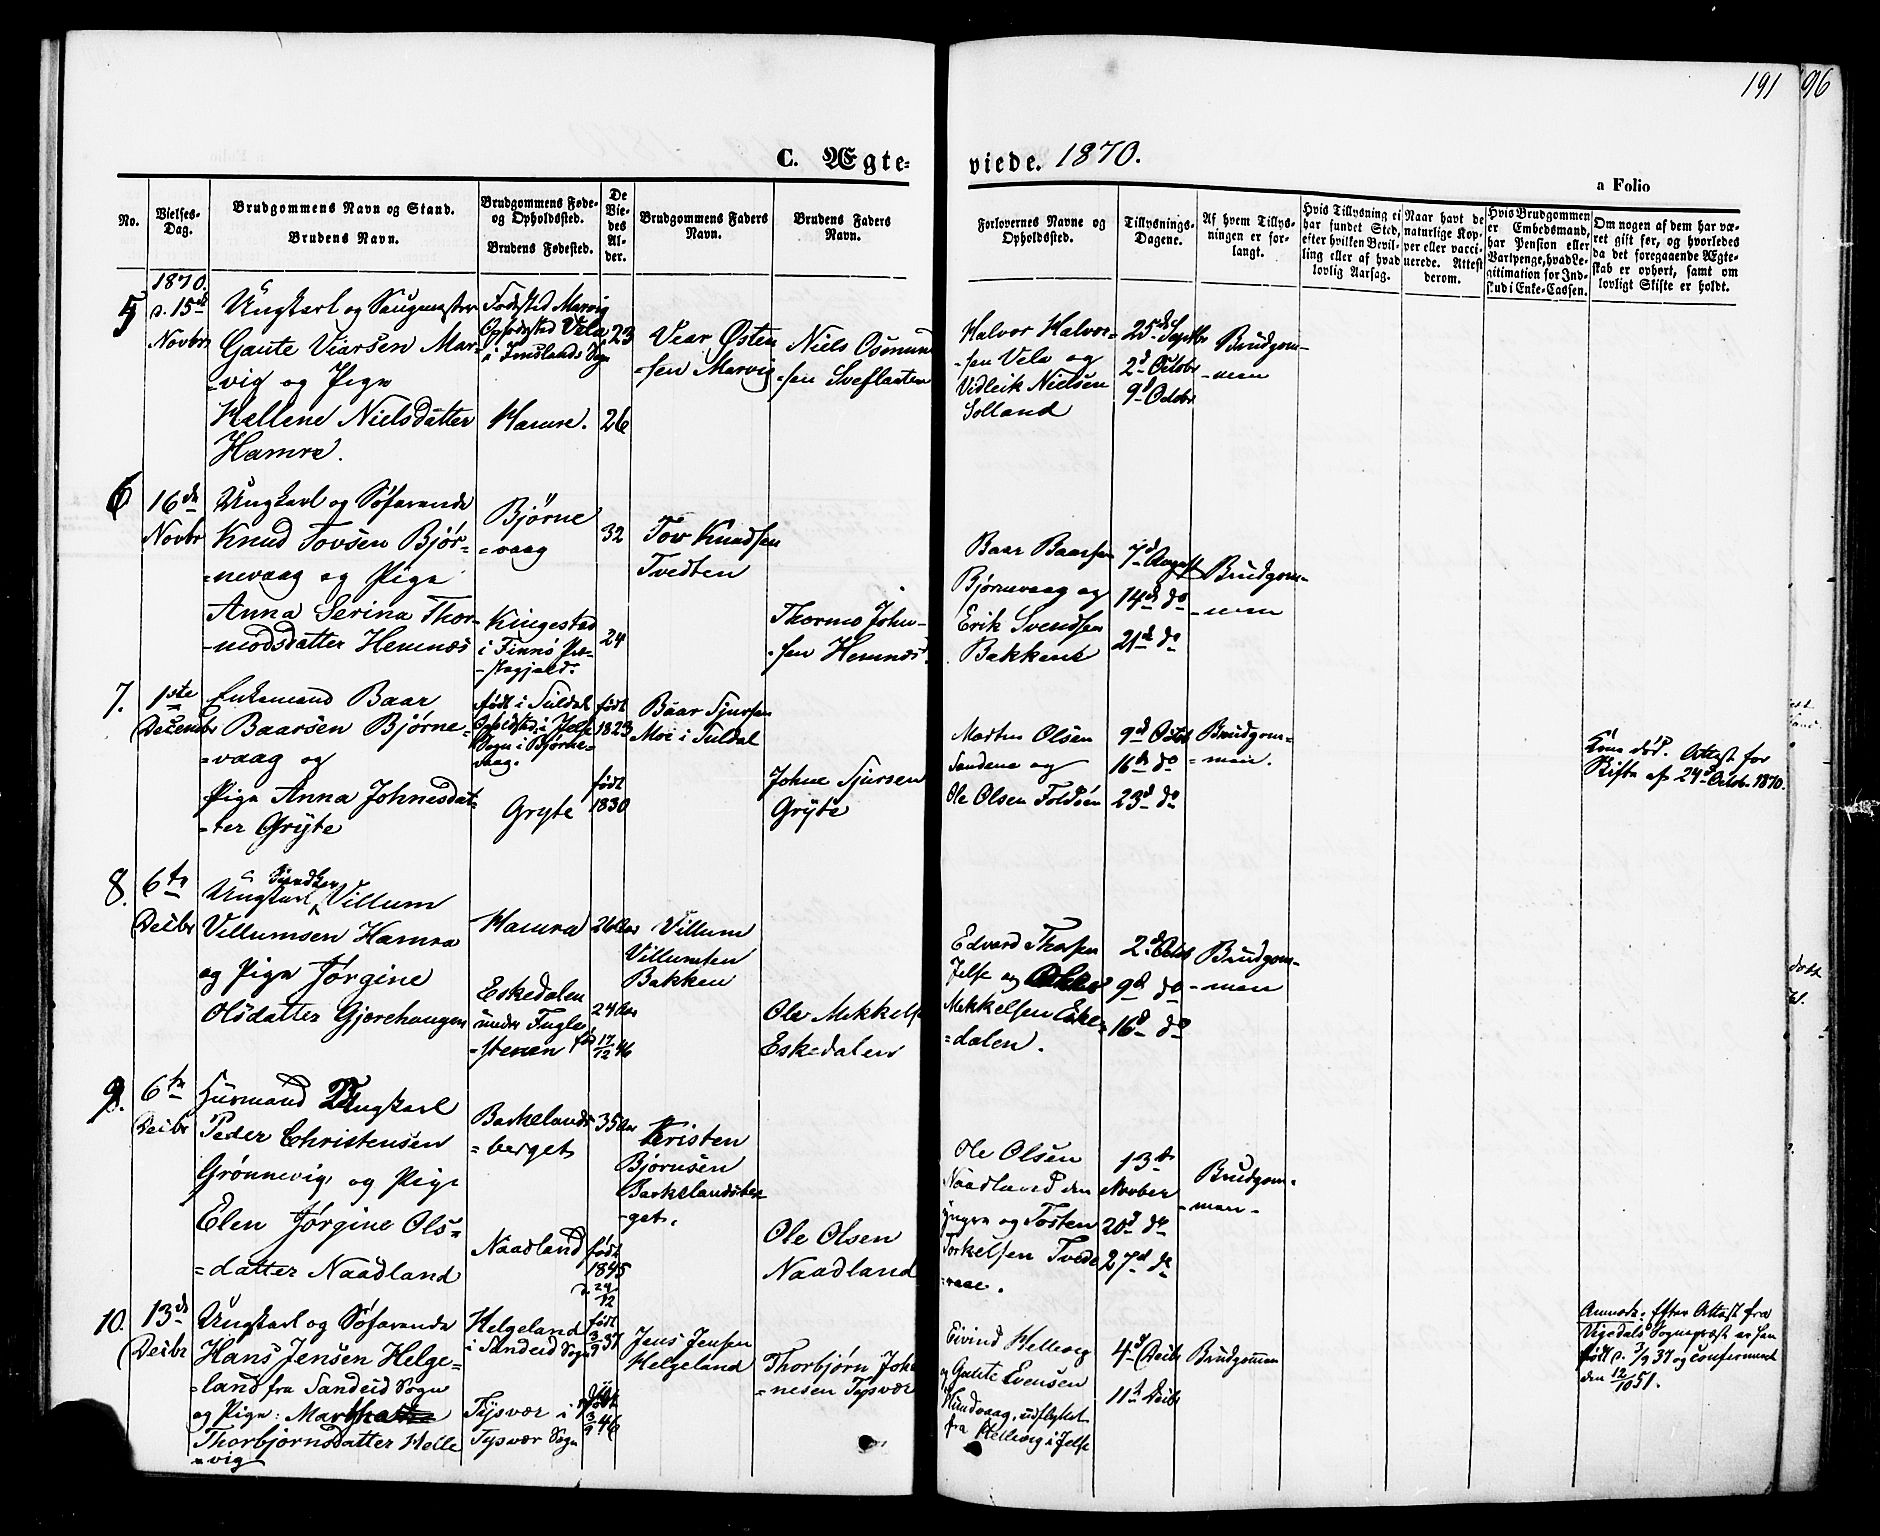 191
96
C. Ægte-
viede. 1870.
a Folio
No.
Vielses-
Dag.
Brudgommens Navn og Stand.
Brudens Navn.
Brudgommens Føde-
og Opholdssted.
Brudens Fødested.
De
Vie-
des
Al-
der.
Brudgommens Faders
Navn.
Brudens Faders
Navn.
Forlovernes Navne og
Opholdssted.
Tillysnings-
Dagene.
Af hvem Tillys-
ningen er for-
langt.
Hvis Tillysning ei
har fundet Sted,
efter hvilken Bevil-
ling eller af hvad
lovlig Aarsag.
Naar havt de
naturlige Kop-
per eller vacci-
nerede. Attest
derom.
Hvis Brudgommen
er Embedsmand,
har Pension eller
Vartpenge, hvad Le-
gitimation for Ind-
skud i Enke-Cassen.
Om nogen af dem har væ-
ret gift før, og hvorledes
da det foregaaende Ægte-
skab er ophørt, samt om
lovligt Skifte er holdt.
1870.
5
d. 15de
Novbr
Ungkarl og Saugmester
Gaute Viarsen Mar-
-vig og Pige
Hellene Nielsdatter
Hamre.
Fødested Marvig
Opholdssted Vela
i Imslands Sogn
Hamre.
23
26
Vear Østen
-sen Marvig
Niels Osmund
-sen Sveflaaten
Halvor Halvor-
-sen Vela og
Vidleik Nielsen
Solland
25de Septbr
2d Octobr
9d Octobr
Brudgom-
-men
6
16de
Novbr
Ungkarl og Søfarende
Knud Tovsen Bjør-
-nevaag og Pige
Anna Serina Thor-
-modsdatter Hemnæs
Bjørne
-vaag
Kingestad
i Finnø Præ-
-stegjeld.
32
24
Tov Knudsen
Tvedten
Thormo John-
-sen Hemnæs.
Baar Baarsen
Bjørnevaag og
Erik Svendsen
Bakkene
7d August
14de do
21de do
Brudgom-
-men
7.
1ste
Decembr
Enkemand Baar
Baarsen Bjørne-
-vaag og
Pige Anna Johnesdat-
-ter Gryte
født i Suldal
Opholdsted i Jelse
Sogn i Bjørne-
vaag.
Gryte
født
1823
født
1830
Baar Sjursen
Moe i Suldal
Johne Sjursen
Gryte
Morten Olsen
Sandene og
Ole Olsen Foldøen
9d Octob
16de do
23d do
Brudgom-
-men.
Kone død. Attest for
Skifte af 24d Octob. 1870.
8.
6te
Decbr
Ungkarl Villum
Villumsen Hamra
og Pige Jørgine
Olsdatter Gjerehaugen
Hamra
Eskedalen
under Fugle
-stenen fød
26 Aar
24 Aar
17/12 46
Villum
Villumsen
Bakken
Ole Mekkels
Eskedalen
Edvard Thorsen
Jelse og
Mekkelsen Eske-
-dalen.
2d Octob
9d do
16d do
Brudgom-
-men
9.
6te
Decbr
Huusmand Ungkarl
Peder Christensen
Grønnevig, og Pige
Elen Jørgine Ols-
-datter Naadland
Barkelands
-berget
Naadland
35 Aar
født
1845
d. 24/12
Kristen
Bjørnsen
Barkelandsber
-get.
Ole Olsen
Naadland
Ole Olsen
Naadland den
yngre og Tosten
Torkelsen Tvede
-vaae.
13de
November
20d do
27d do
Brudgom-
-men-
10.
13de
Decbr
Ungkarl og Søfarende
Hans Jensen Helge-
-land fra Sandeid Sogn
og Pige: Martha
Thorbjørnsdatter Helle
-vig
Helgeland
i Sandeid Sogn
Tysvær i
Tysvær Sogn
født
3/9 37
født
3/9 46
Jens Jensen
Helgeland
Thorbjørn Joh
-nesen Tysvær
Eivind Hellevig
og Gaute Evensen
Hundvaag, udflyttet
fra Hellevig i Jelse
4d Decbr
11te Decbr
Brudgommen
Anmærk: Efter Attest fra
Vigedals Sognepræst er han
født d. 3/9 37 og confirmeret
den 12/10 51.